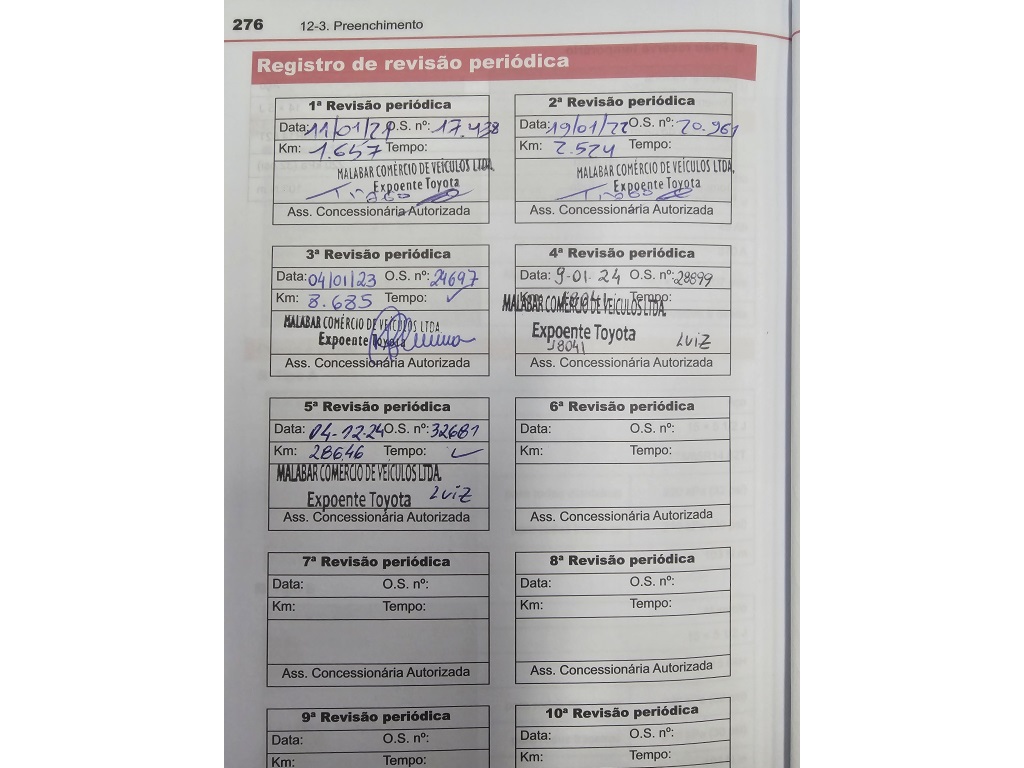 276 12-3. Preenchimento
Registro de revisão periódica
1ª Revisão periódica
Data: 11/01/21 O.S. nº: 17.438
Km: 1.657 Tempo:
MALABAR COMÉRCIO DE VEÍCULOS LTDA.
Expoente Toyota
Tiago
Ass. Concessionária Autorizada
2ª Revisão periódica
Data: 19/01/22 O.S. nº: 20.961
Km: 2.524 Tempo:
MALABAR COMÉRCIO DE VEÍCULOS LTDA.
Expoente Toyota
Tiago
Ass. Concessionária Autorizada
3ª Revisão periódica
Data: 04/01/23 O.S. nº: 24697
Km: 8.685 Tempo: ✓
MALABAR COMÉRCIO DE VEÍCULOS LTDA
Expoente Toyota
Ass. Concessionária Autorizada
4ª Revisão periódica
Data: 9-01-24 O.S. nº: 28899
Km: 18041 Tempo:
MALABAR COMÉRCIO DE VEÍCULOS LTDA.
Expoente Toyota
18041 LUIZ
Ass. Concessionária Autorizada
5ª Revisão periódica
Data: 04-12-24 O.S. nº: 32681
Km: 28646 Tempo: ✓
MALABAR COMÉRCIO DE VEÍCULOS LTDA.
Expoente Toyota LUIZ
Ass. Concessionária Autorizada
6ª Revisão periódica
Data: O.S. nº:
Km: Tempo:
Ass. Concessionária Autorizada
7ª Revisão periódica
Data: O.S. nº:
Km: Tempo:
Ass. Concessionária Autorizada
8ª Revisão periódica
Data: O.S. nº:
Km: Tempo:
Ass. Concessionária Autorizada
9ª Revisão periódica
Data: O.S. nº:
Km: Tempo:
10ª Revisão periódica
Data: O.S. nº:
Km: Tempo: